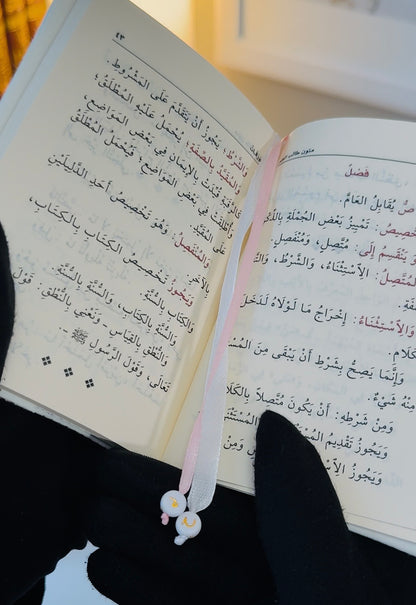 فَصْلٌ
ـصُ يُقَابِلُ الْعَامَّ.
ـخْصِيصُ: تَمْيِيزُ بَعْضِ الْجُمْلَةِ
ـوَ يَنْقَسِمُ إِلَى: مُتَّصِلٍ، وَمُنْفَصِلٍ.
الْمُتَّصِلُ: الِاسْتِثْنَاءُ، وَالشَّرْطُ،
ـفَةِ.
وَالِاسْتِثْنَاءُ: إِخْرَاجُ مَا لَوْلَاهُ لَدَخَلَ
ـلَامِ.
وَإِنَّمَا يَصِحُّ بِشَرْطِ أَنْ يَبْقَى مِنَ
مِنْهُ شَيْءٌ.
وَمِنْ شَرْطِهِ: أَنْ يَكُونَ مُتَّصِلًا بِالْكَلَامِ
وَيَجُوزُ تَقْدِيمُ
وَيَجُوزُ وَمِنْ
٤٣
وَالشَّرْطُ: يَجُوزُ أَنْ يَتَقَدَّمَ عَلَى الْمَشْرُوطِ.
وَالْمُقَيَّدُ بِالصِّفَةِ: يُحْمَلُ عَلَيْهِ الْمُطْلَقُ؛
كَالرَّقَبَةِ قُيِّدَتْ بِالْإِيمَانِ فِي بَعْضِ الْمَوَاضِعِ،
وَأُطْلِقَتْ فِي بَعْضِ الْمَوَاضِعِ؛ فَيُحْمَلُ الْمُطْلَقُ
عَلَى الْمُقَيَّدِ.
وَالْمُنْفَصِلُ: وَهُوَ تَخْصِيصُ أَحَدِ الدَّلِيلَيْنِ
بِالْآخَرِ.
وَيَجُوزُ تَخْصِيصُ الْكِتَابِ بِالْكِتَابِ،
وَالْكِتَابِ بِالسُّنَّةِ، وَالسُّنَّةِ بِالْكِتَابِ، وَالسُّنَّةِ
بِالسُّنَّةِ، وَالنُّطْقِ بِالْقِيَاسِ - وَنَعْنِي بِالنُّطْقِ: قَوْلَ
تَعَالَى، وَقَوْلَ الرَّسُولِ ﷺ -.